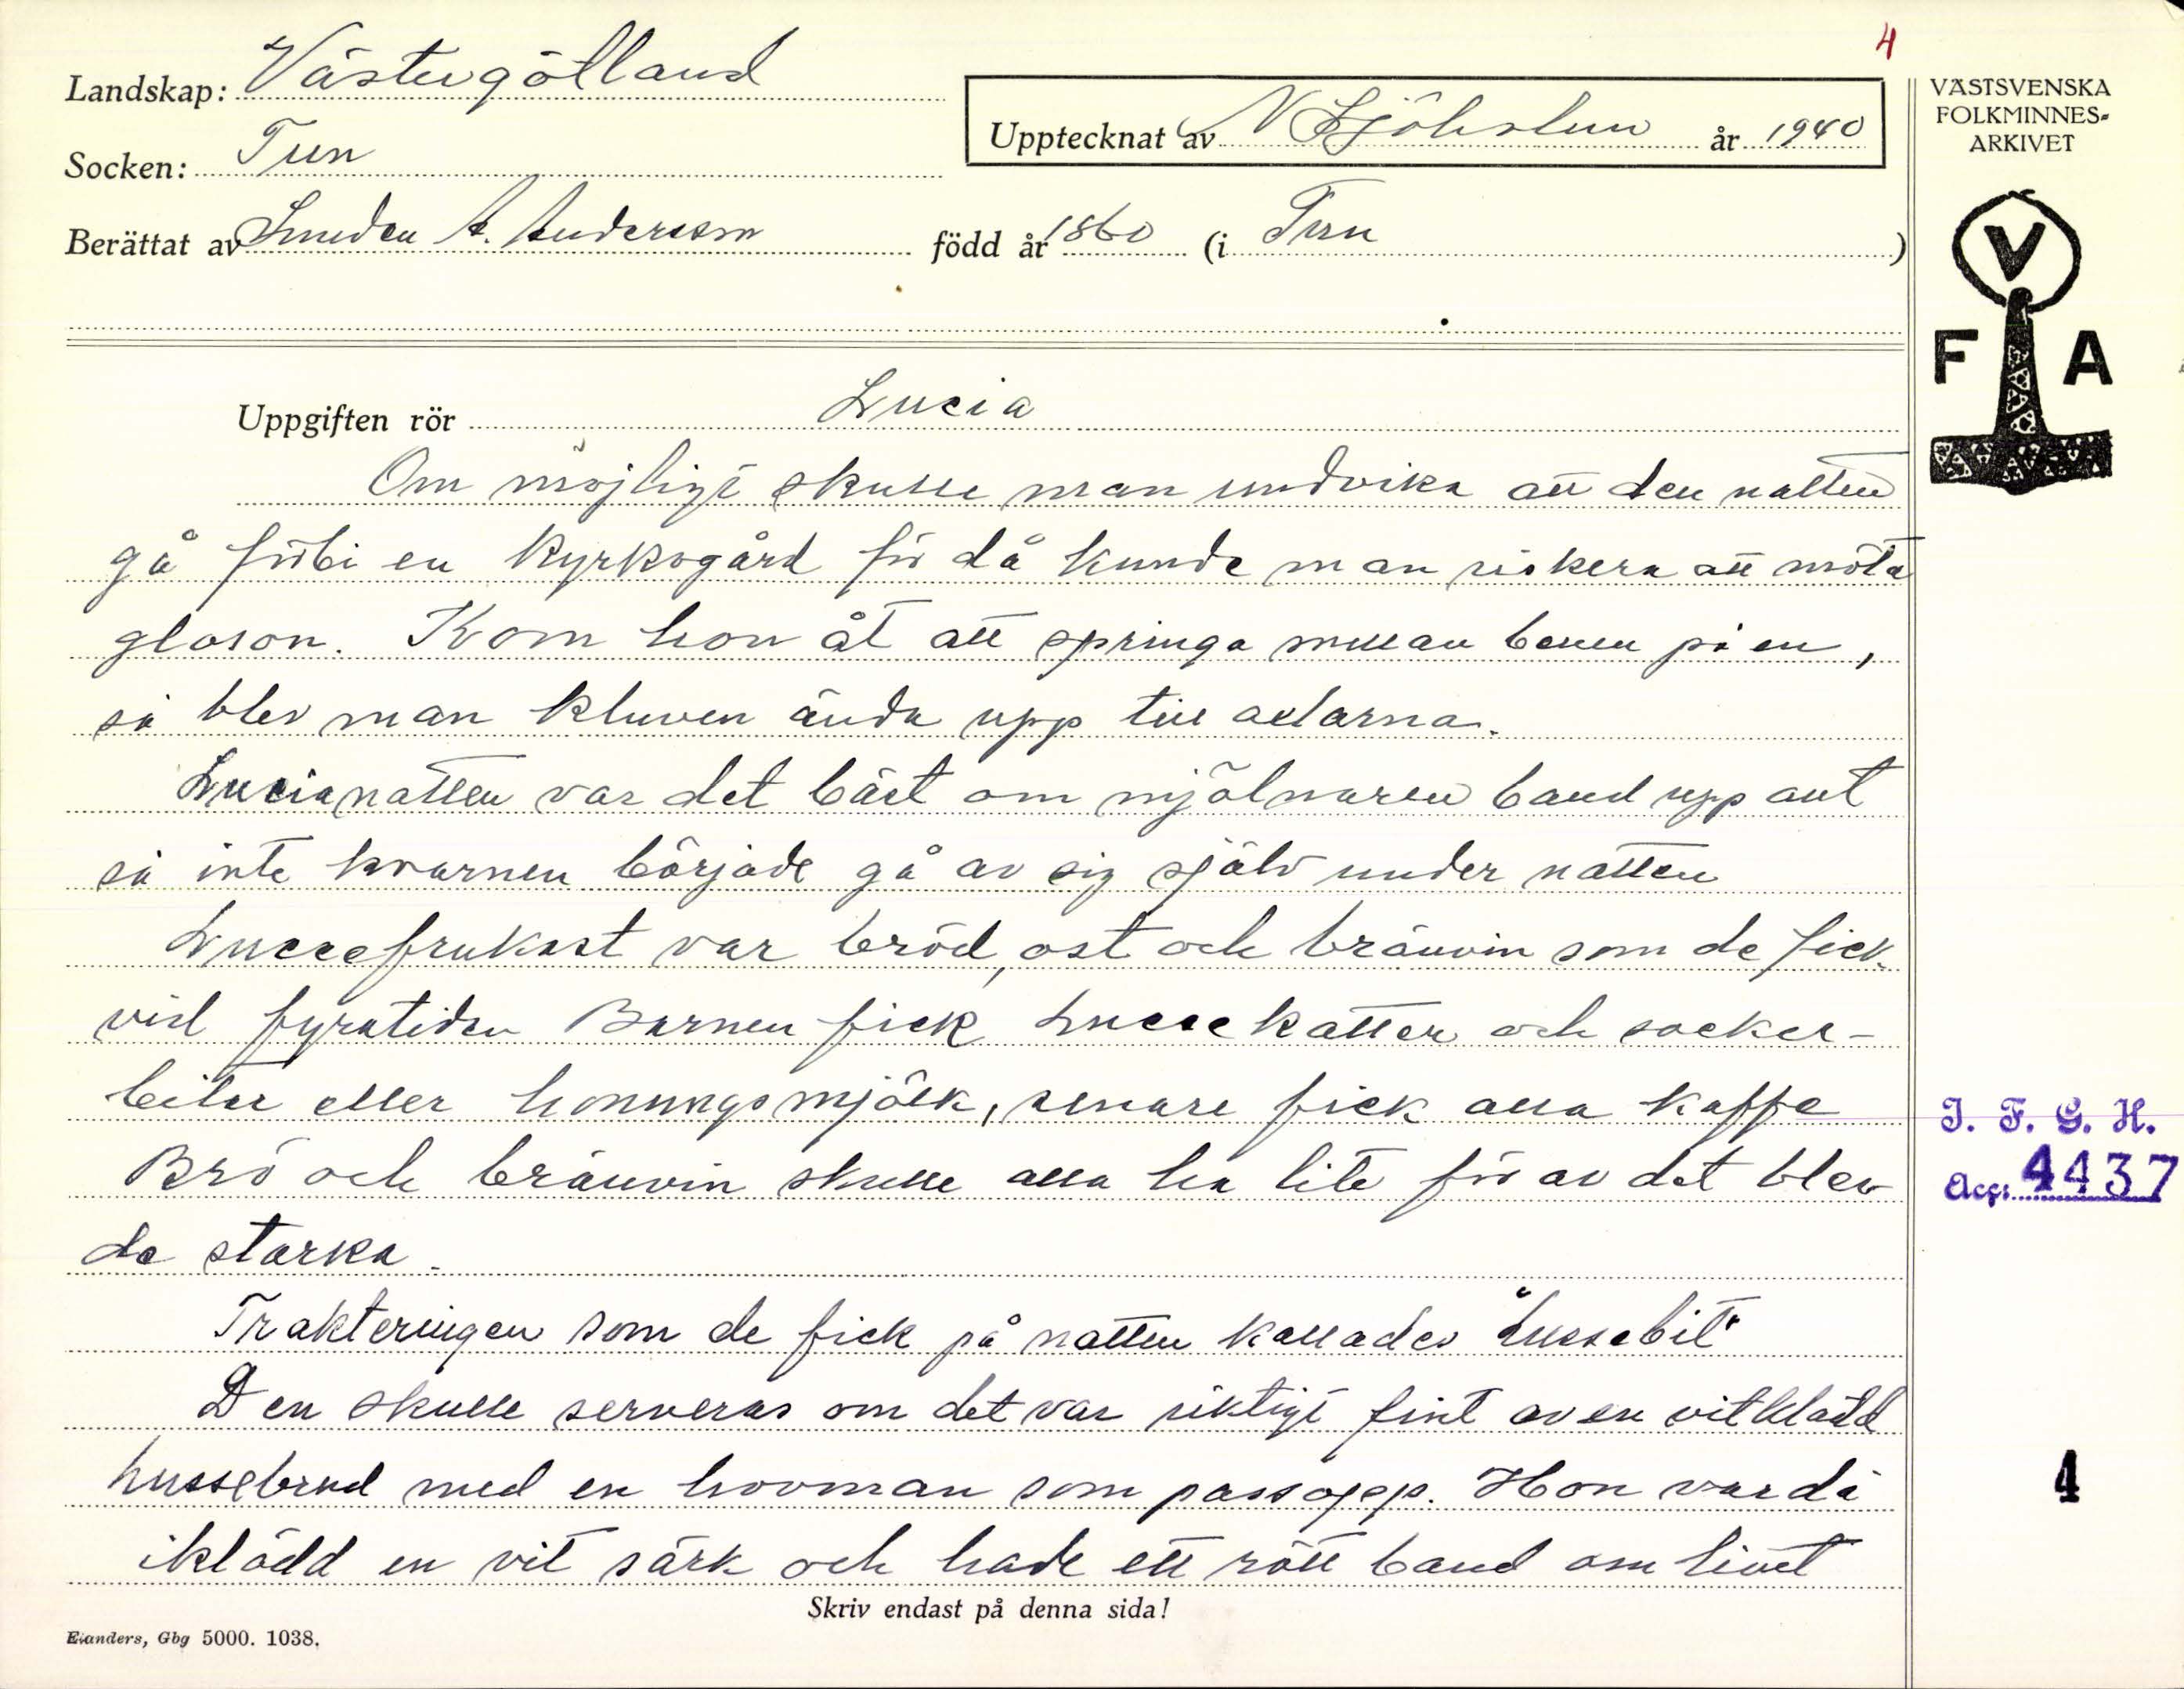 4
Landskap: Västergötland
VÄSTSVENSKA
FOLKMINNES-
ARKIVET
Upptecknat av N år 1940
Socken: Tun
Berättat av Smeden A. Andersson född år 1860 (i Tun )
V
F A
Uppgiften rör Lucia
Om möjligt skulle man undvika att den natten
gå förbi en kyrkogård för då kunde man riskera att möta
gloson. Kom hon åt att springa mellan benen på en,
så blev man kluven ända upp till axlarna.
Lucianatten var det bäst om mjölnaren band upp allt
så inte kvarnen började gå av sig själv under natten
Lussefrukost var bröd, ost och brännvin som de fick
vid fyratiden Barnen fick Lussekatter och socker-
bitar eller honungsmjölk, senare fick alla kaffe
Brö och brännvin skulle alla ha lite för av det blev
de starka.
Trakteringen som de fick på natten kallades "Lussebit"
Den skulle serveras om det var riktigt fint av en vitklädd
Lussebrud med en hovman som passopp. Hon var då
iklädd en vit särk och hade ett rött band om livet
Skriv endast på denna sida!
Elanders, Gbg 5000. 1038.
I. F. G. H.
Acc: 4437
4